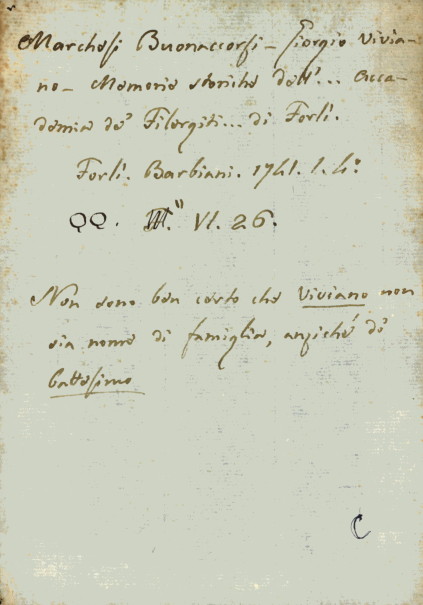 Marchesi Buonaccorsi - Giorgio Vivia-
no - Memorie storiche dell'... Acca-
demia de' Filergiti... di Forlì.
Forlì. Barbiani. 1741. 1. 4.°
QQ. VI. 26.
Non sono ben certo che Viviano non
sia nome di famiglia, anziché di
battesimo
C